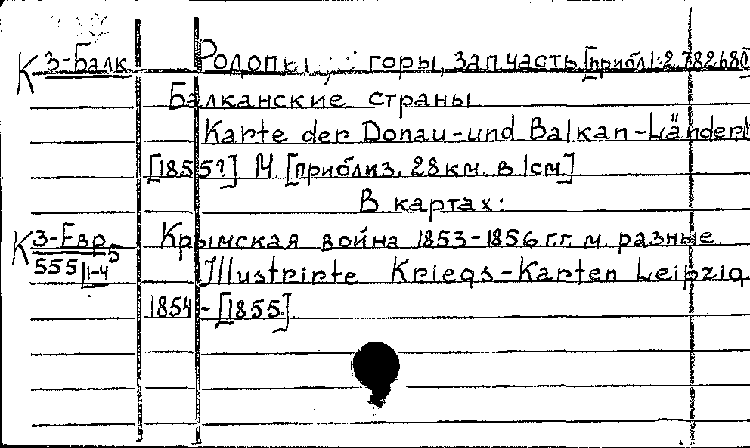 К 3-Балк Родопы, горы, зап. часть [прибл. 1:2.782.680]
Балканские страны
Karte der Donau-und Balkan-Länder
[1855?] М [приблиз. 28 км. в 1 см.]
В картах:
К 3-Евр. 5 Крымская война 1853-1856 г.г. м. разные
555 1-4 Illustrirte Kriegs-Karten Leipzig
1854-[1855]